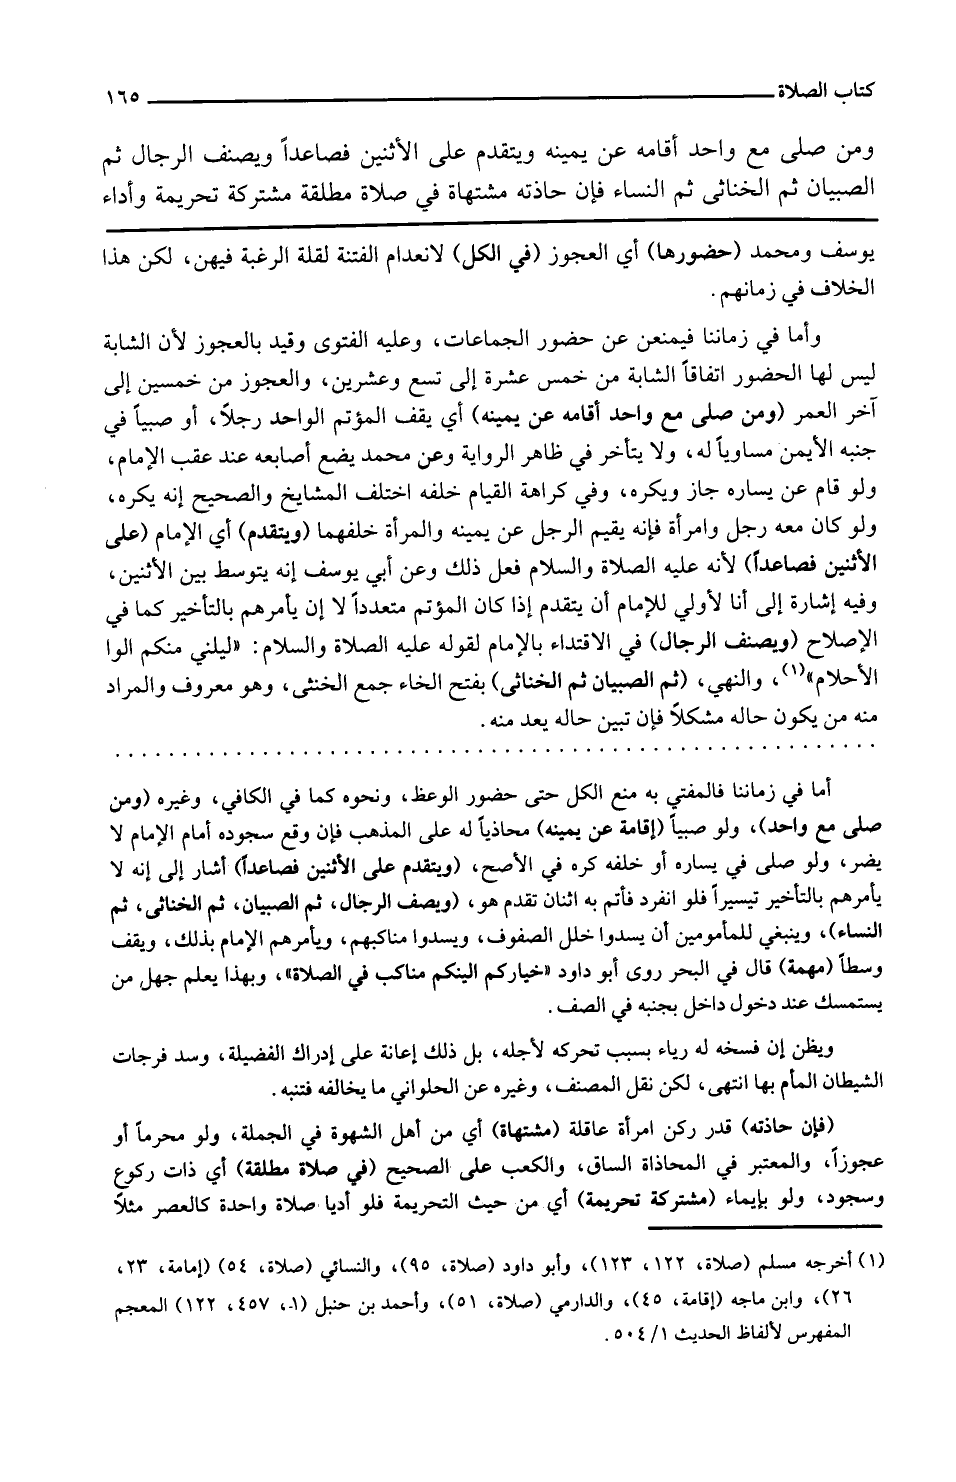 كتاب الصلاة ١٦٥
ومن صلى مع واحد أقامه عن يمينه ويتقدم على الأثنين فصاعداً ويصنف الرجال ثم
الصبيان ثم الخناثى ثم النساء فإن حاذته مشتهاة في صلاة مطلقة مشتركة تحريمة وأداء
يوسف ومحمد (حضورها) أي العجوز (في الكل) لانعدام الفتنة لقلة الرغبة فيهن، لكن هذا
الخلاف في زمانهم.
وأما في زماننا فيمنعن عن حضور الجماعات، وعليه الفتوى وقيد بالعجوز لأن الشابة
ليس لها الحضور اتفاقاً الشابة من خمس عشرة إلى تسع وعشرين، والعجوز من خمسين إلى
آخر العمر (ومن صلى مع واحد أقامه عن يمينه) أي يقف المؤتم الواحد رجلاً، أو صبياً في
جنبه الأيمن مساوياً له، ولا يتأخر في ظاهر الرواية وعن محمد يضع أصابعه عند عقب الإمام،
ولو قام عن يساره جاز ويكره، وفي كراهة القيام خلفه اختلف المشايخ والصحيح إنه يكره،
ولو كان معه رجل وامرأة فإنه يقيم الرجل عن يمينه والمرأة خلفهما (ويتقدم) أي الإمام (على
الأثنين فصاعداً) لأنه عليه الصلاة والسلام فعل ذلك وعن أبي يوسف إنه يتوسط بين الأثنين،
وفيه إشارة إلى أنا لأولي للإمام أن يتقدم إذا كان المؤتم متعدداً لا إن يأمرهم بالتأخير كما في
الإصلاح (ويصنف الرجال) في الاقتداء بالإمام لقوله عليه الصلاة والسلام: «ليلني منكم الوا
الأحلام»(١)، والنهي، (ثم الصبيان ثم الخناثى) بفتح الخاء جمع الخنثى، وهو معروف والمراد
منه من يكون حاله مشكلاً فإن تبين حاله يعد منه.
أما في زماننا فالمفتي به منع الكل حتى حضور الوعظ، ونحوه كما في الكافي، وغيره (ومن
صلى مع واحد)، ولو صبياً (إقامة عن يمينه) محاذياً له على المذهب فإن وقع سجوده أمام الإمام لا
يضر، ولو صلى في يساره أو خلفه كره في الأصح، (ويتقدم على الأثنين فصاعداً) أشار إلى إنه لا
يأمرهم بالتأخير تيسيراً فلو انفرد فأتم به اثنان تقدم هو، (ويصف الرجال، ثم الصبيان، ثم الخناثى، ثم
النساء)، وينبغي للمأمومين أن يسدوا خلل الصفوف، ويسدوا مناكبهم، ويأمرهم الإمام بذلك، ويقف
وسطاً (مهمة) قال في البحر روى أبو داود «خياركم الينكم مناكب في الصلاة»، وبهذا يعلم جهل من
يستمسك عند دخول داخل بجنبه في الصف.
ويظن إن فسخه له رياء بسبب تحركه لأجله، بل ذلك إعانة على إدراك الفضيلة، وسد فرجات
الشيطان المأم بها انتهى، لكن نقل المصنف، وغيره عن الحلواني ما يخالفه فتنبه.
(فإن حاذته) قدر ركن امرأة عاقلة (مشتهاة) أي من أهل الشهوة في الجملة، ولو محرماً أو
عجوزاً، والمعتبر في المحاذاة الساق، والكعب على الصحيح (في صلاة مطلقة) أي ذات ركوع
وسجود، ولو بإيماء (مشتركة تحريمة) أي من حيث التحريمة فلو أديا صلاة واحدة كالعصر مثلاً
(١) أخرجه مسلم (صلاة، ١٢٢، ١٢٣)، وأبو داود (صلاة، ٩٥)، والنسائي (صلاة، ٥٤) (إمامة، ٢٣،
٢٦)، وابن ماجه (إقامة، ٤٥)، والدارمي (صلاة، ٥١)، وأحمد بن حنبل (١، ٤٥٧، ١٢٢) المعجم
المفهرس لألفاظ الحديث ٥٠٤/١.